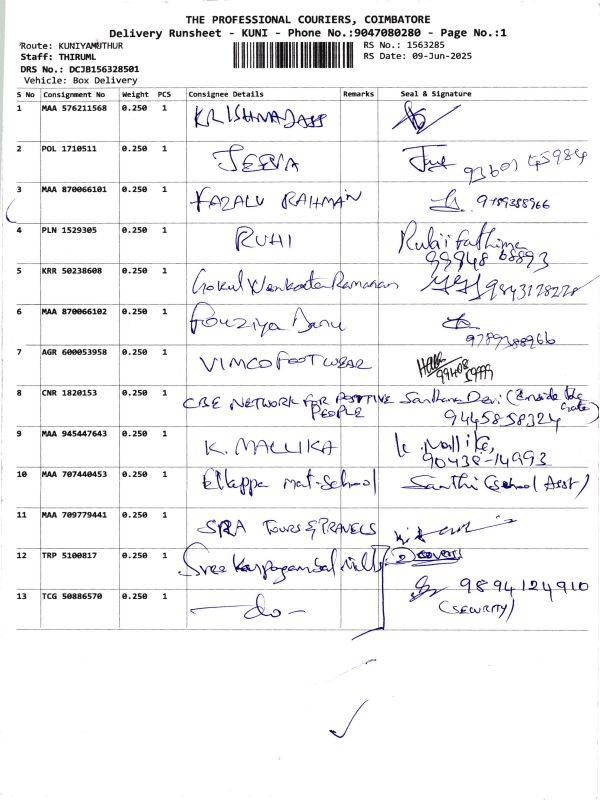 THE PROFESSIONAL COURIERS, COIMBATORE
Delivery Runsheet - KUNI - Phone No.:9047080280 - Page No.:1
Route: KUNIYAMUTHUR RS No.: 1563285
Staff: THIRUML RS Date: 09-Jun-2025
DRS No.: DCJB156328501
Vehicle: Box Delivery
S No Consignment No Weight PCS Consignee Details Remarks Seal & Signature
1 MAA 576211568 0.250 1 KRISHNADASS
2 POL 1710511 0.250 1 JEEVA 93601 45984
3 MAA 870066101 0.250 1 FAZALU RAHMAN 9789388966
4 PLN 1529305 0.250 1 RUHI Rubi Fathima
99948 68893
5 KRR 50238608 0.250 1 Gokul Venkata Ramanan 9843178278
6 MAA 870066102 0.250 1 Fouziya Banu
9789388966
7 AGR 600053958 0.250 1 VIMCO FOOTWEAR
99408
8 CNR 1820153 0.250 1 CBE NETWORK FOR POSITIVE Santhana Devi (Inside the
PEOPLE 9445858324 Gate)
9 MAA 945447643 0.250 1 K. MALLIKA K. Mallika
90438-14993
10 MAA 707440453 0.250 1 Ellappa mat-School Santhi (School Asst)
11 MAA 709779441 0.250 1 SRA TOURS & TRAVELS
12 TRP 5100817 0.250 1 Sree Karpagambal Mills 2 covers
13 TCG 50886570 0.250 1 -do- 9894124910
(SECURITY)